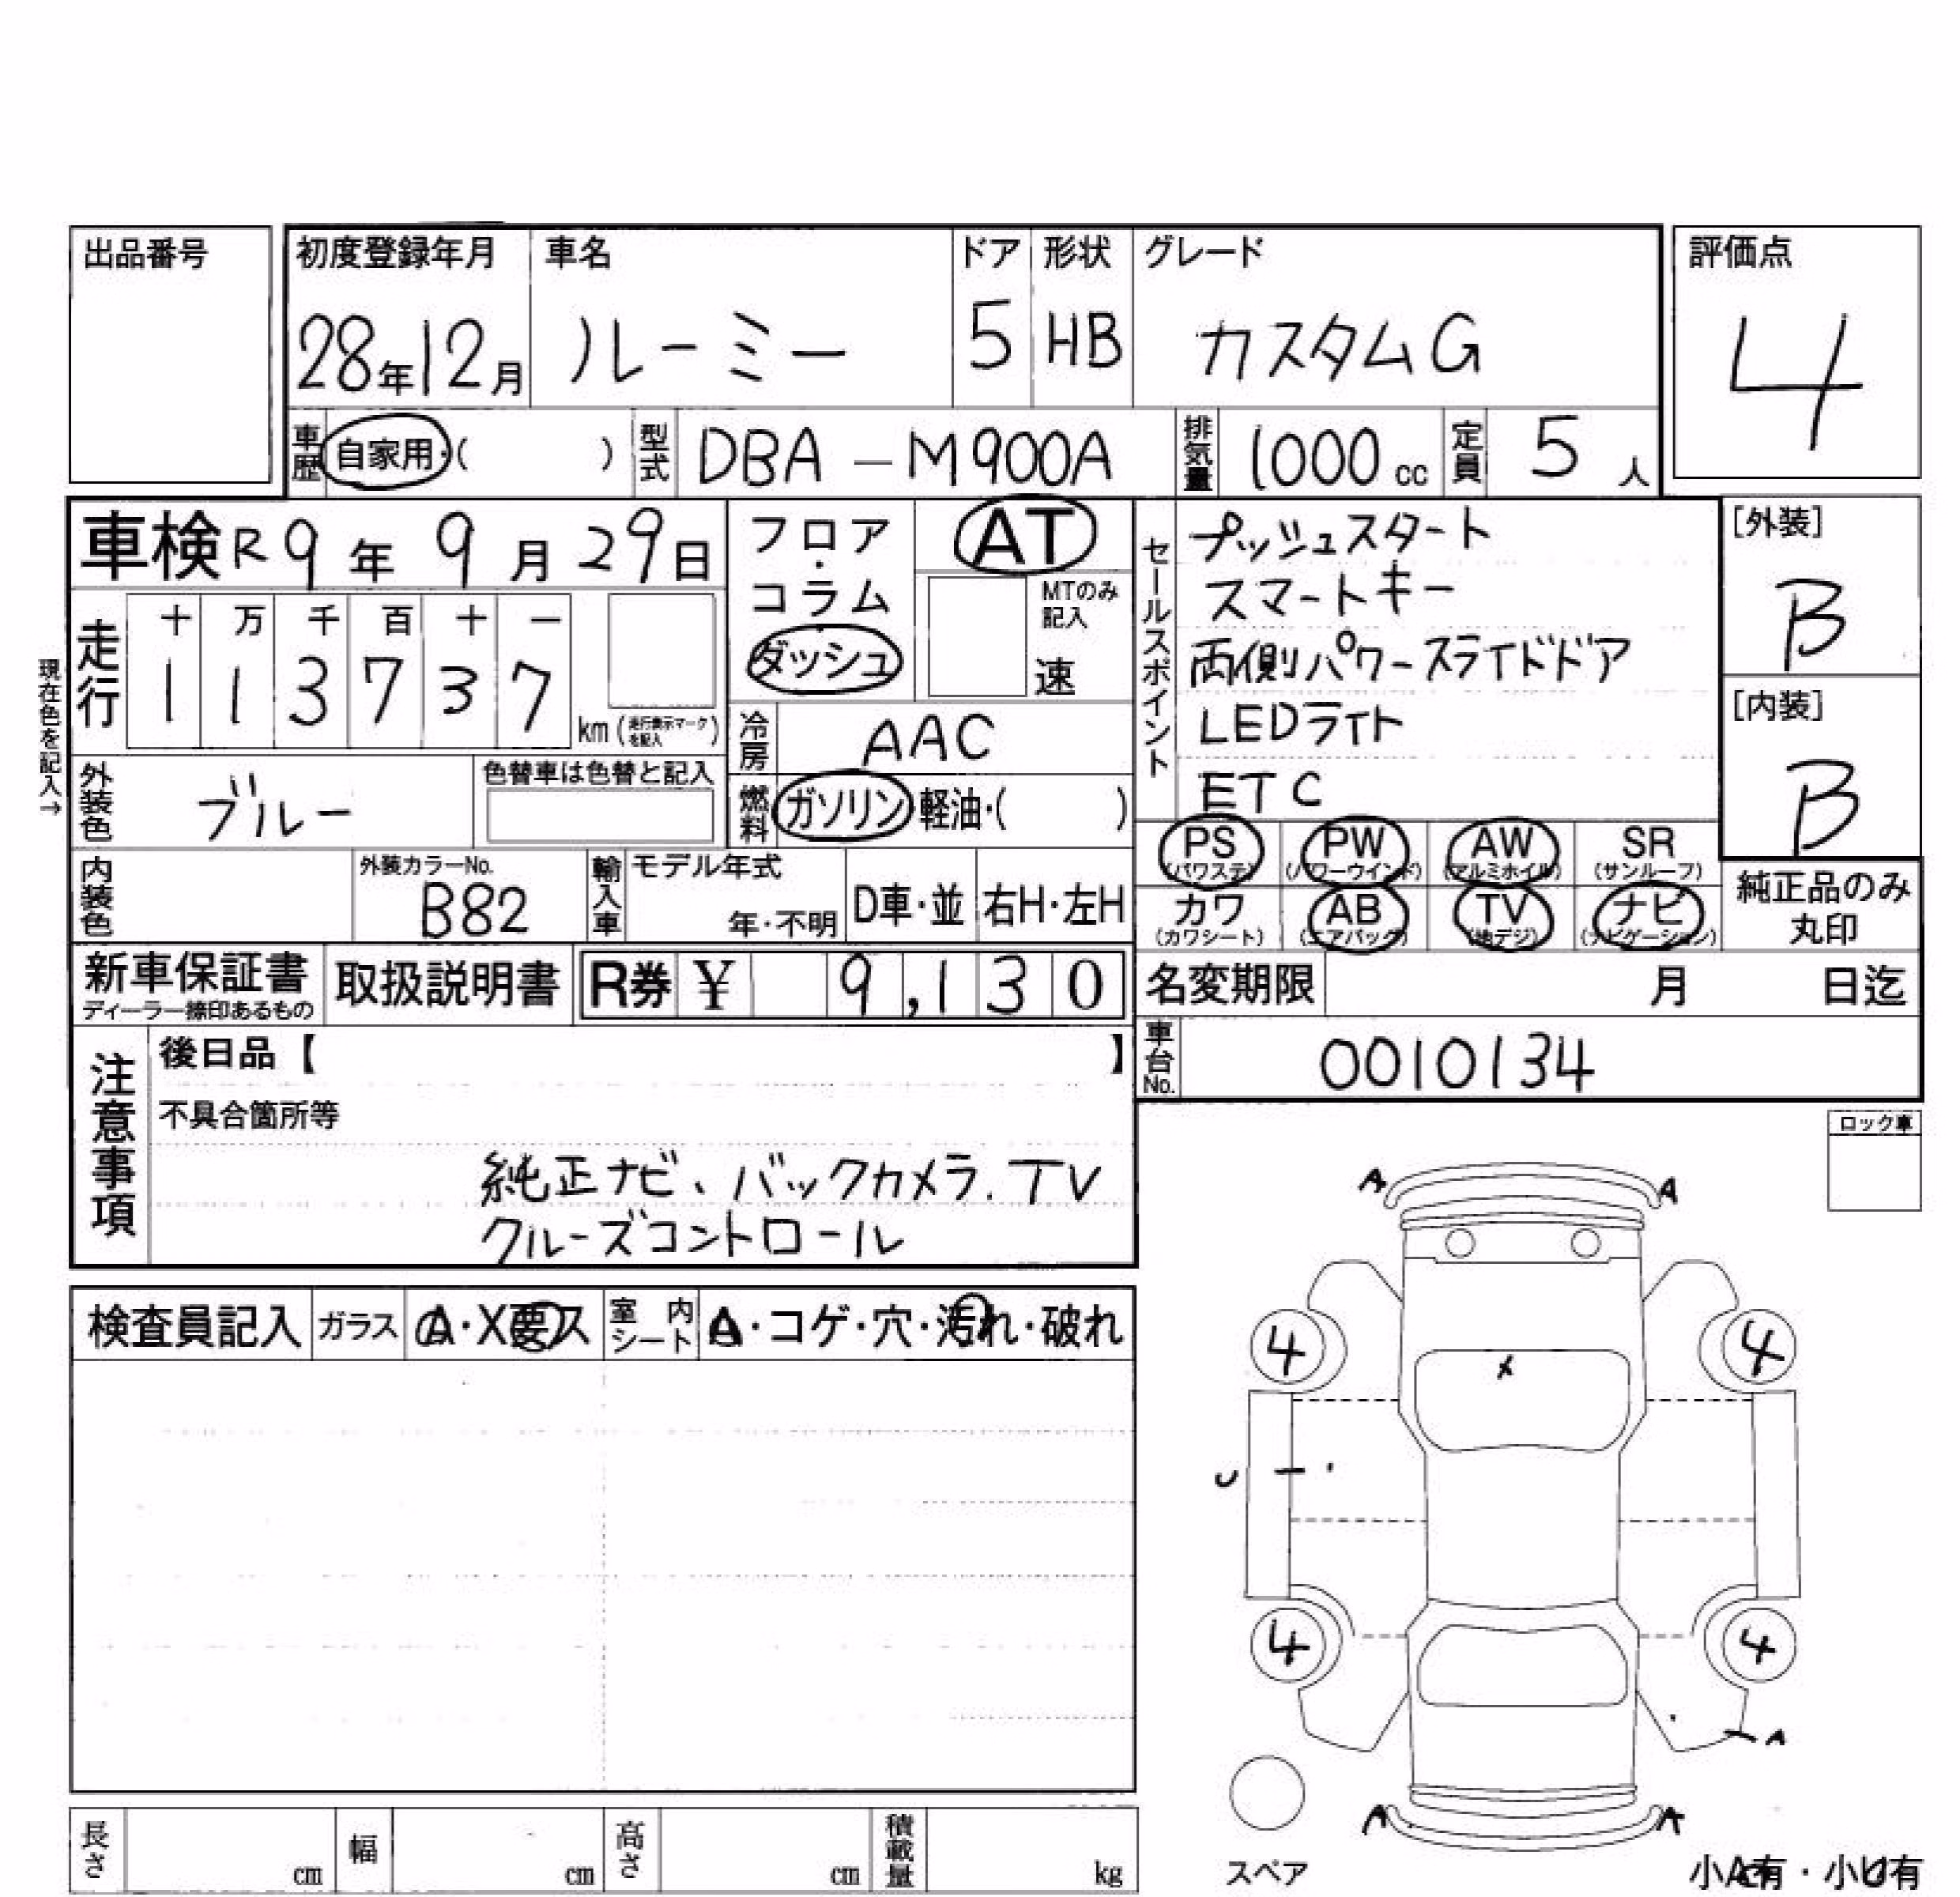 出品番号
初度登録年月 車名 ドア 形状 グレード 評価点
28年12月 ルーミー 5 HB カスタムG 4
車歴 自家用・( ) 型式 DBA-M900A 排気量 1000cc 定員 5人
車検 R9年9月29日 フロア・コラム・ダッシュ AT
MTのみ記入 速
走行 十万千百十一
113737 km(走行表示マークを記入)
現在色を記入→
外装色 ブルー 色替車は色替と記入
冷房 AAC
燃料 ガソリン・軽油・( )
セールスポイント
プッシュスタート
スマートキー
両側パワースライドドア
LEDライト
ETC
[外装]
B
[内装]
B
PS(パワステ) PW(パワーウインド) AW(アルミホイル) SR(サンルーフ)
カワ(カワシート) AB(エアバッグ) TV(地デジ) ナビ(ナビゲーション)
純正品のみ丸印
内装色 外装カラーNo. B82 輸入車 モデル年式 年・不明 D車・並 右H・左H
新車保証書 ディーラー捺印あるもの 取扱説明書 R券 ¥ 9,130
名変期限 月 日迄
車台No. 0010134
注意事項
後日品【 】
不具合箇所等
純正ナビ、バックカメラ.TV
クルーズコントロール
ロック車
A A
検査員記入 ガラス A・X要ス 室内シート A・コゲ・穴・汚れ・破れ
4 4
X
U
4 4
A
A A
スペア
小A有・小U有
長さ cm 幅 cm 高さ cm 積載量 kg